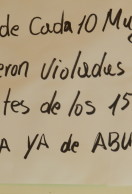 de Cada 10 Muj
eron Violadas
tes de los 15
A YA de ABU